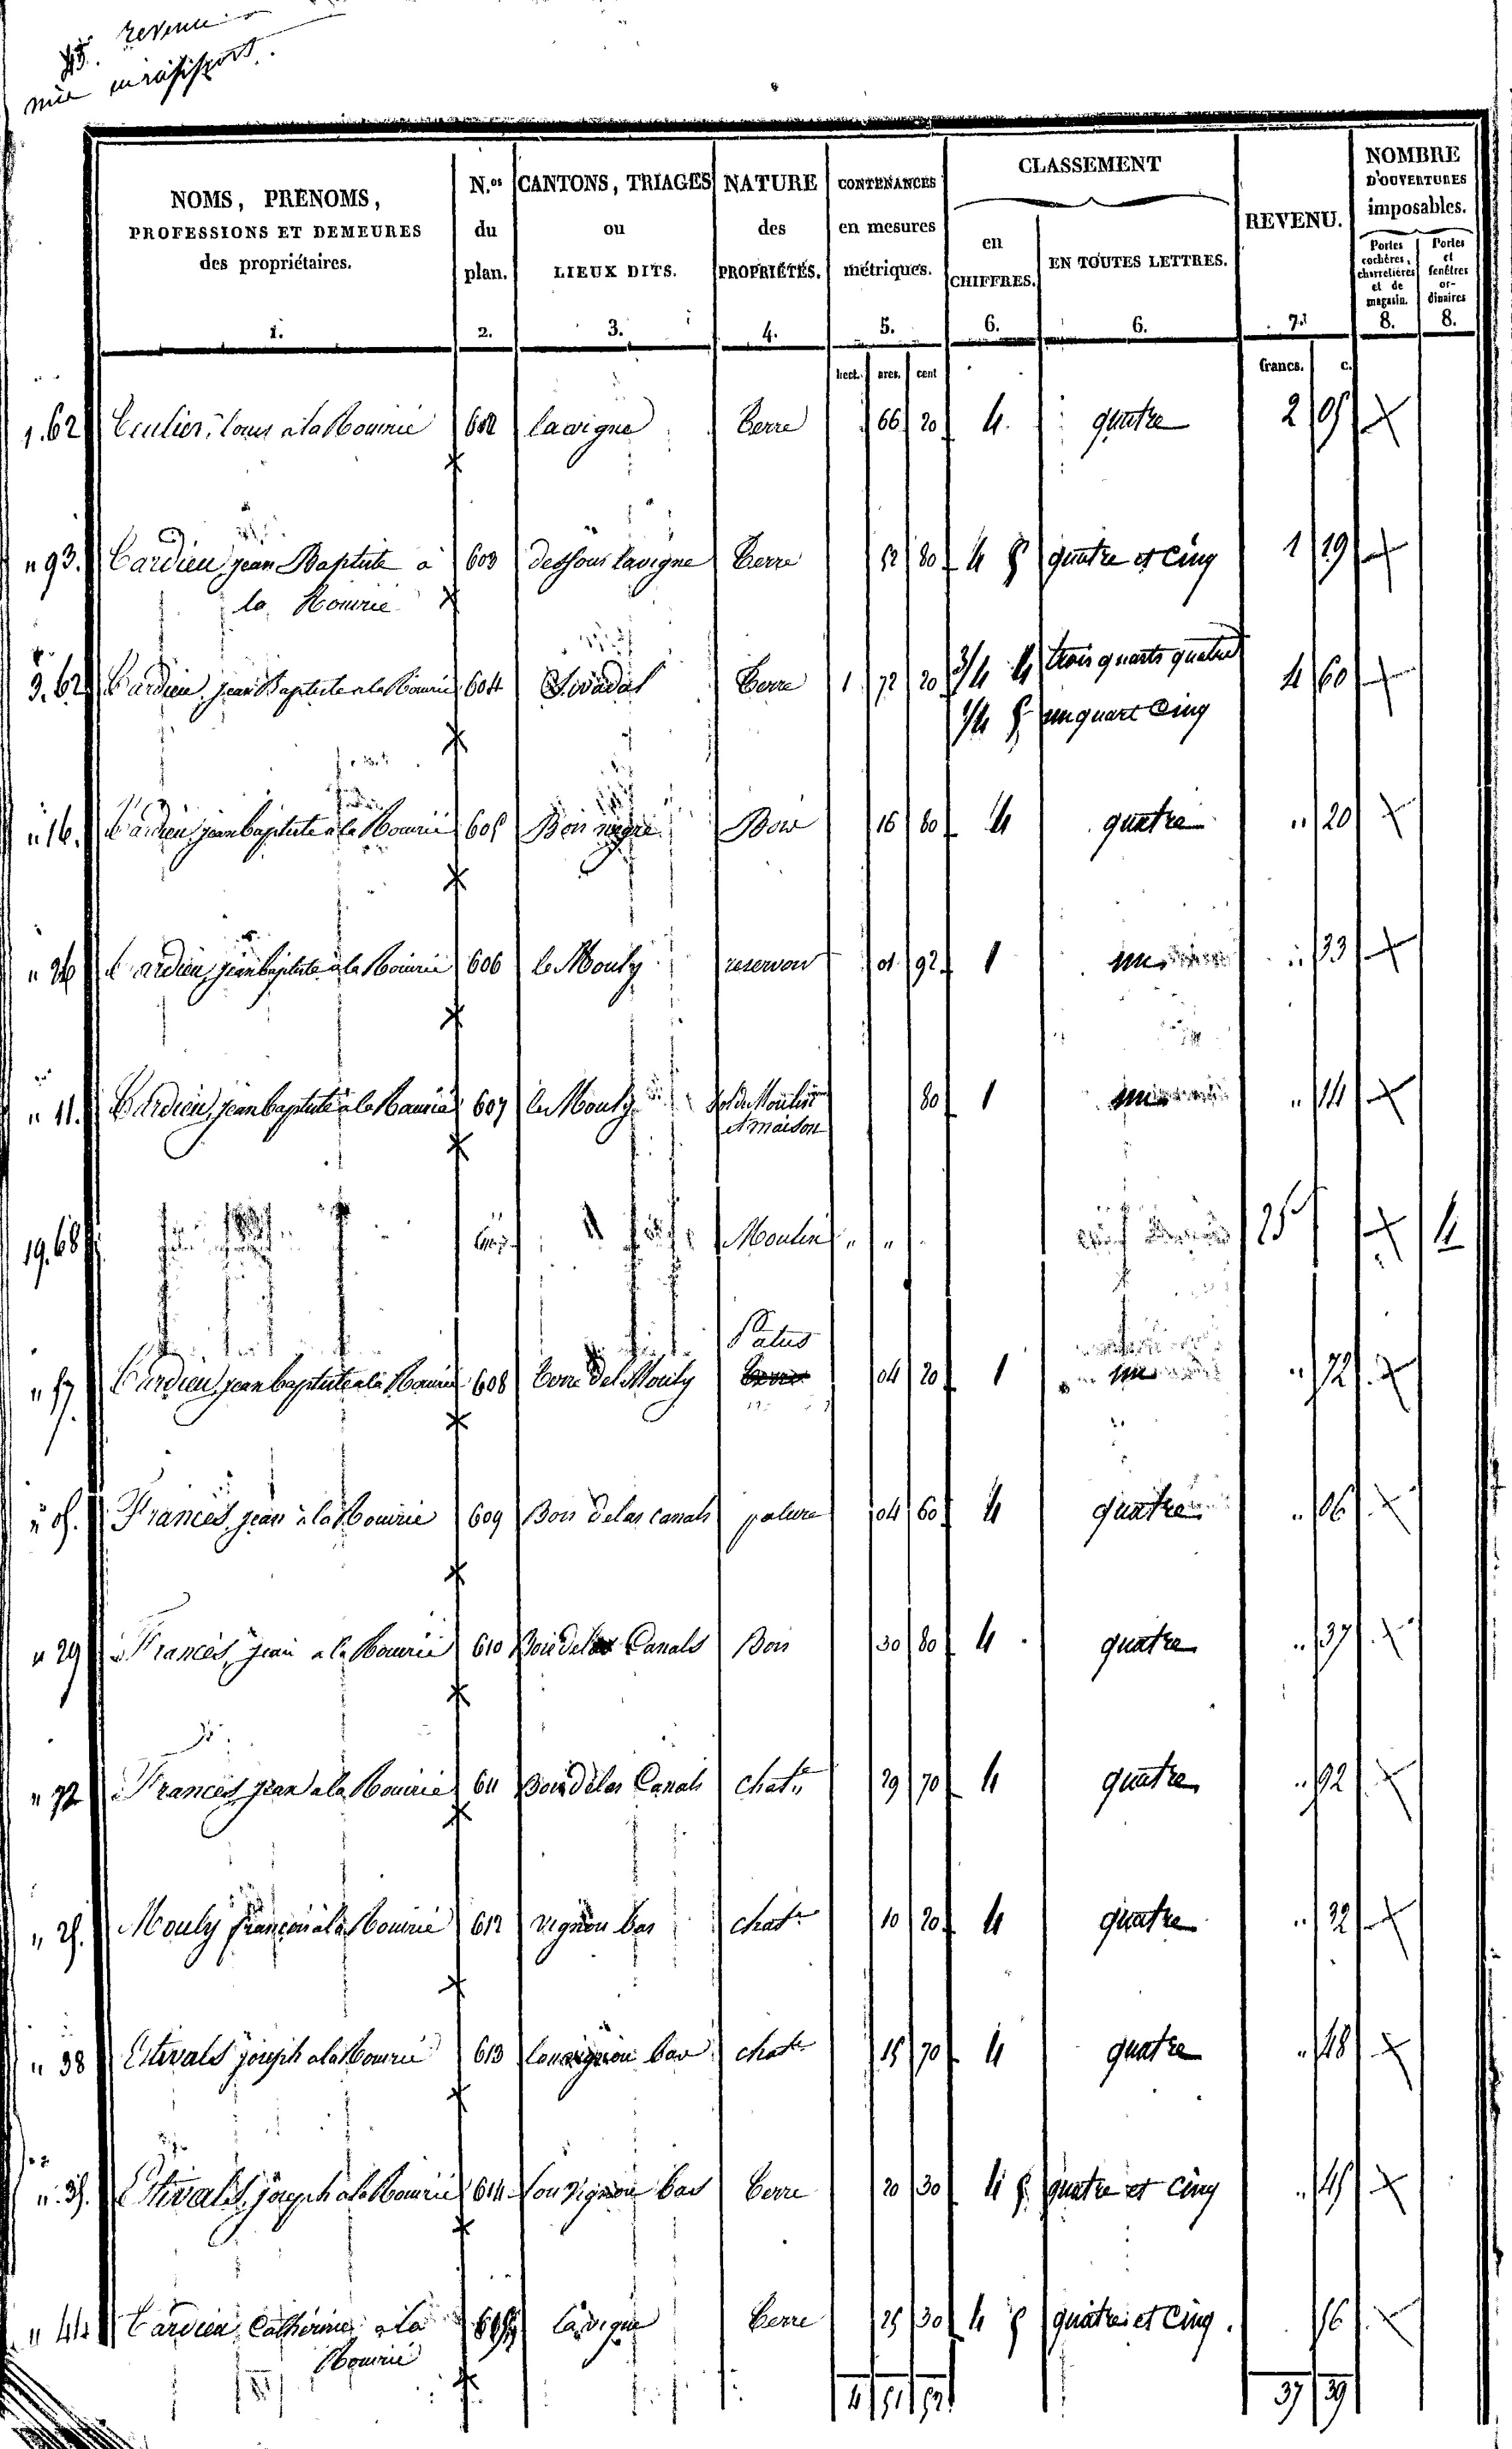 45. revenu
NOMS, PRENOMS,
PROFESSIONS ET DEMEURES
des propriétaires.
1.
N.os
du
plan.
2.
CANTONS, TRIAGES
ou
LIEUX DITS.
3.
NATURE
des
PROPRIÉTÉS.
4.
CONTENANCES
en mesures
métriques.
5.
CLASSEMENT
en
CHIFFRES.
6.
EN TOUTES LETTRES.
6.
REVENU.
7.
NOMBRE
D'OUVERTURES
imposables.
Portes
cochères,
charretières
et de
magasin.
8.
Portes
et
fenêtres
or-
dinaires
8.
hect. ares. cent francs. c.
1.62 Teulier, Louis a la Rouirié 602 lavigne Terre 66 20 4. quatre 2 05
" 93. Tardieu jean Baptiste a 603 dessous lavigne Terre 52 80 4 5 quatre et Cinq 1 19
la Rouirié
3.62 Tardieu jean Baptiste a la Rouirié 604 Sivadal Terre 1 72 20 3/4 4 trois quarts quatre 4 60
1/4 5 un quart Cinq
" 16. Tardieu jean baptiste a la Rouirié 605 Bois negre Bois 16 80 4 quatre " 20
" 26 Tardieu jean baptiste a la Rouirié 606 le Mouly reservoir 01 92 1 un " 33
" 11. Tardieu jean baptiste a la Rouirié 607 le Mouly Sol de Moulin 80 1 un " 14
et maison
19.68 Moulin " " 25 4
Patus
" 57 Tardieu jean baptiste a la Rouirié 608 Terre del Mouly 04 20 1 un " 72
" 05. Francès jean a la Rouirié 609 Bois de las canals pature 04 60 4 quatre " 06
" 29 Francès jean a la Rouirié 610 Bois de las Canals Bois 30 80 4 quatre " 37
" 72 Francès jean a la Rouirié 611 Bois de las Canals chat.e 29 70 4 quatre " 92
" 25. Mouly françois a la Rouirié 612 vignou bas chat.e 10 20 4 quatre " 32
" 38 Estivals joseph a la Rouirié 613 lou vignou bas chat.e 15 70 4 quatre " 48
" 35. Estivals joseph a la Rouirié 614 lou vignou bas Terre 20 30 4 5 quatre et Cinq " 45
" 44 Tardieu Catherine a la 615 la vigne Terre 25 30 4 5 quatre et Cinq. 56
Rouirié
4 51 52 37 39